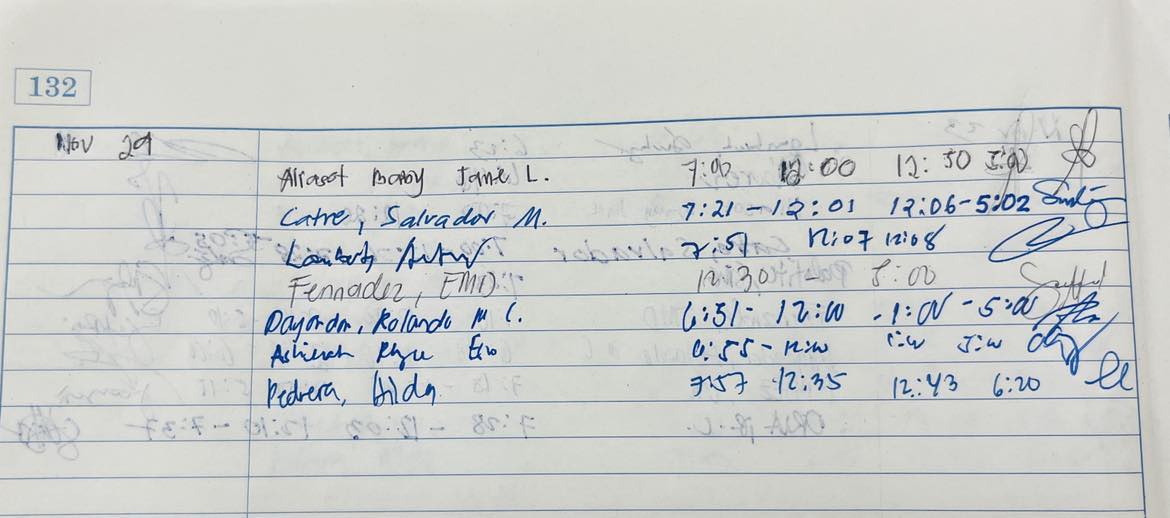 132
Nov 29
Aliasot Baby Jane L. 7:00 12:00 12:30 5:00
Catre, Salvador M. 7:21 - 12:01 12:06 - 5:02
7:51 12:07 12:08
Fernadez, EMD. 12:30 - 5:00
Dayondon, Rolando M C. 6:51 - 12:00 - 1:00 - 5:00
6:55 - 12:00 1:00 5:00
Pedrera, Hilda 7:57 12:35 12:43 6:20